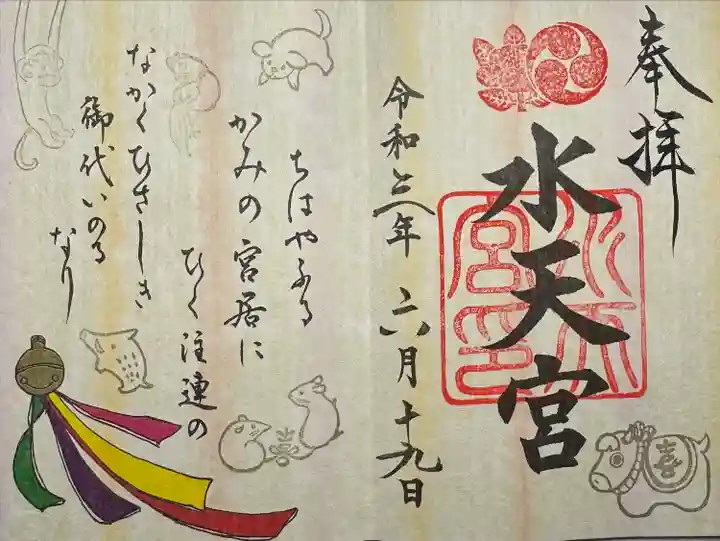 奉拝
水天宮
令和三年 六月十九日
ちはやふる
かみの宮居に
ひく注連の
なかくひさしき
御代いのる
なり
喜
喜